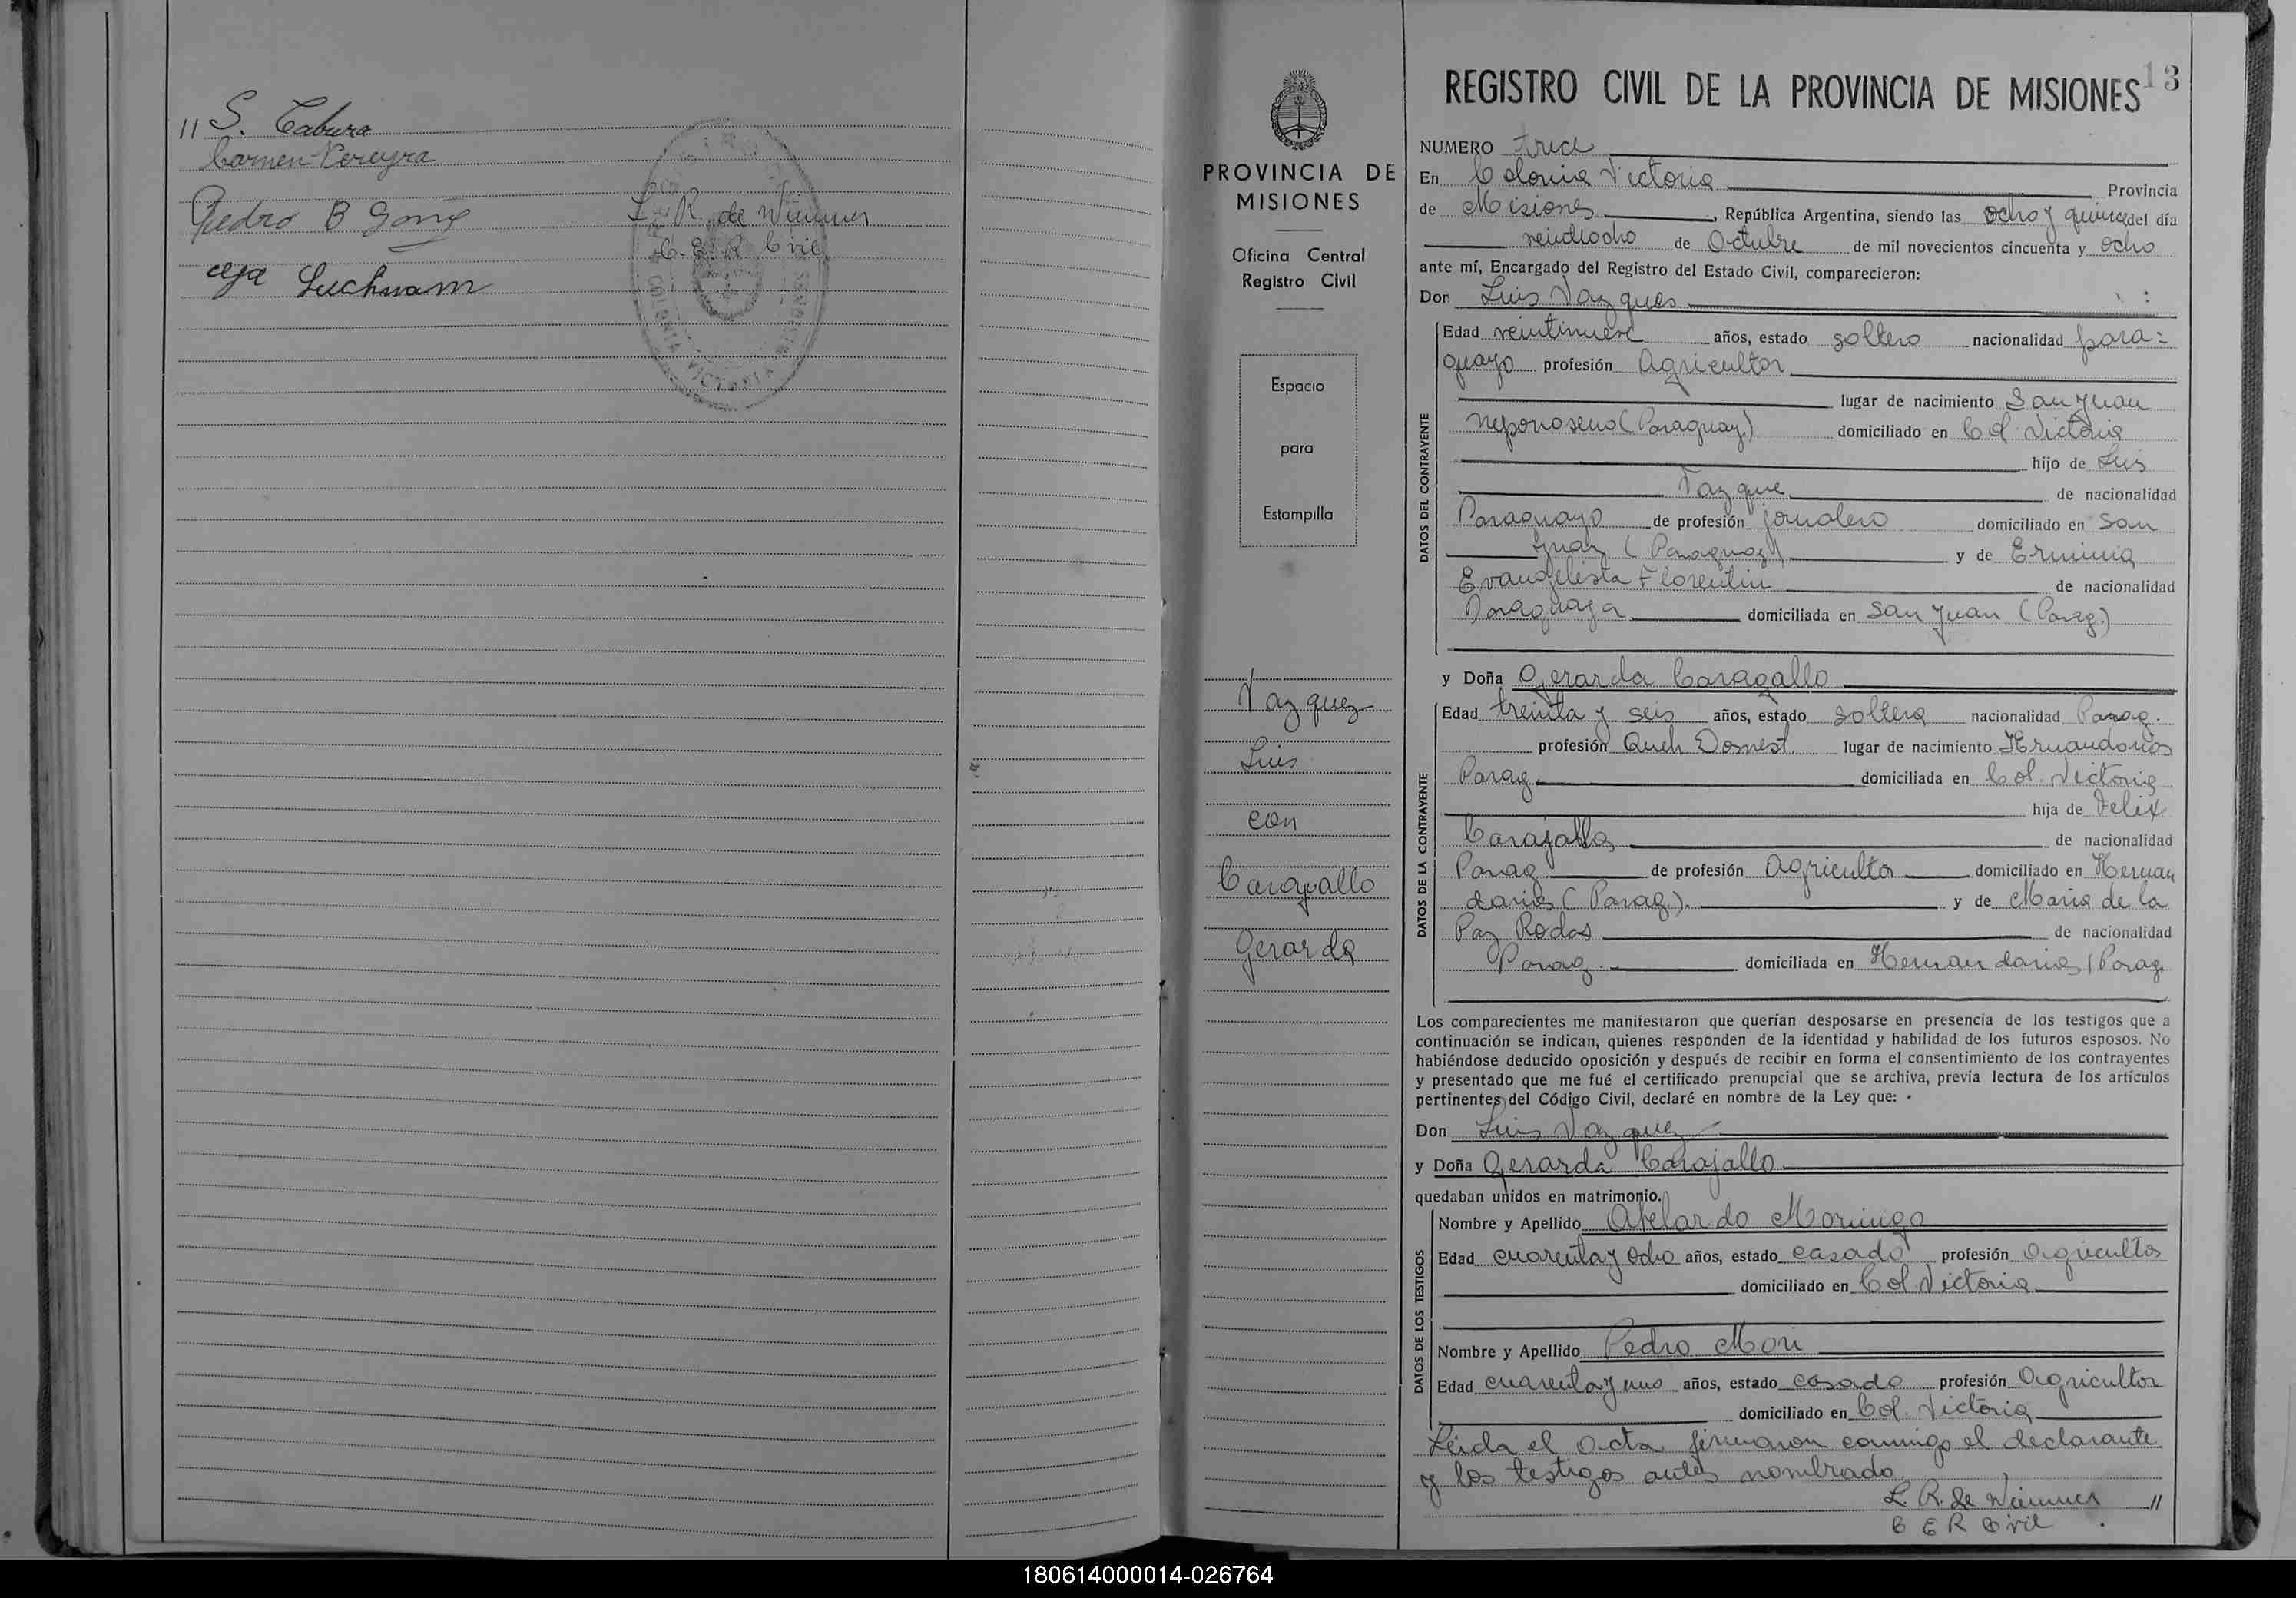 11 S. Cabura
Carmen Pereyra
Pedro B Gomez
L. R. de Wimmer
C. E. R. Civil
Luchmam
COLONIA VICTORIA
13
PROVINCIA DE
MISIONES
Oficina Central
Registro Civil
Espacio
para
Estampilla
Vazquez
Luis
con
Caragallo
Gerarda
REGISTRO CIVIL DE LA PROVINCIA DE MISIONES
NUMERO Trece
En Colonia Victoria Provincia
de Misiones, República Argentina, siendo las ocho y quince del día
veintiocho de Octubre de mil novecientos cincuenta y ocho
ante mí, Encargado del Registro del Estado Civil, comparecieron:
Don Luis Vazques
DATOS DEL CONTRAYENTE
Edad veintinueve años, estado soltero nacionalidad para=
guayo profesión Agricultor
lugar de nacimiento San Juan
Neponoseno (Paraguay) domiciliado en Col Victoria
hijo de Luis
Vazque de nacionalidad
Paraguayo de profesión jornalero domiciliado en San
Juan (Paraguay) y de Erminia
Evangelista Florentin de nacionalidad
Paraguaya domiciliada en San Juan (Parag.)
y Doña Gerarda Caragallo
DATOS DE LA CONTRAYENTE
Edad treinta y seis años, estado soltera nacionalidad Parag.
profesión Queh Domest. lugar de nacimiento Hernandarias
Parag. domiciliada en Col. Victoria
hija de Felix
Carajallo de nacionalidad
Parag. de profesión Agricultor domiciliado en Hernan
darias (Parag). y de Maria de la
Paz Rodas de nacionalidad
Parag. domiciliada en Hernandarias (Parag.
Los comparecientes me manifestaron que querían desposarse en presencia de los testigos que a
continuación se indican, quienes responden de la identidad y habilidad de los futuros esposos. No
habiéndose deducido oposición y después de recibir en forma el consentimiento de los contrayentes
y presentado que me fué el certificado prenupcial que se archiva, previa lectura de los artículos
pertinentes del Código Civil, declaré en nombre de la Ley que:
Don Luis Vazquez
y Doña Gerarda Carajallo
quedaban unidos en matrimonio.
DATOS DE LOS TESTIGOS
Nombre y Apellido Abelardo Morinigo
Edad cuarenta y ocho años, estado casado profesión Agricultor
domiciliado en Col Victoria
Nombre y Apellido Pedro Mori
Edad cuarenta y uno años, estado casado profesión Agricultor
domiciliado en Col. Victoria
Leida el Acta firmaron conmigo el declarante
y los testigos antes nombrado
L. R. de Wimmer //
C E R Civil
180614000014-026764